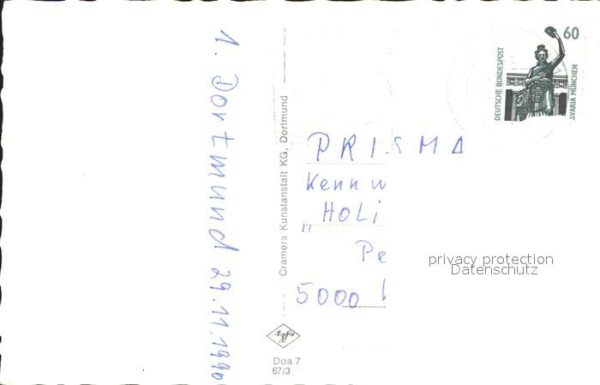 1. Dortmund 29.11.1990
Cramers Kunstanstalt KG, Dortmund
60
DEUTSCHE BUNDESPOST
AVARIA MÜNCHEN
PRISMA
Kennw
"HOLI
Pe
5000
privacy protection
Datenschutz
Agfa
Doa 7
67/3